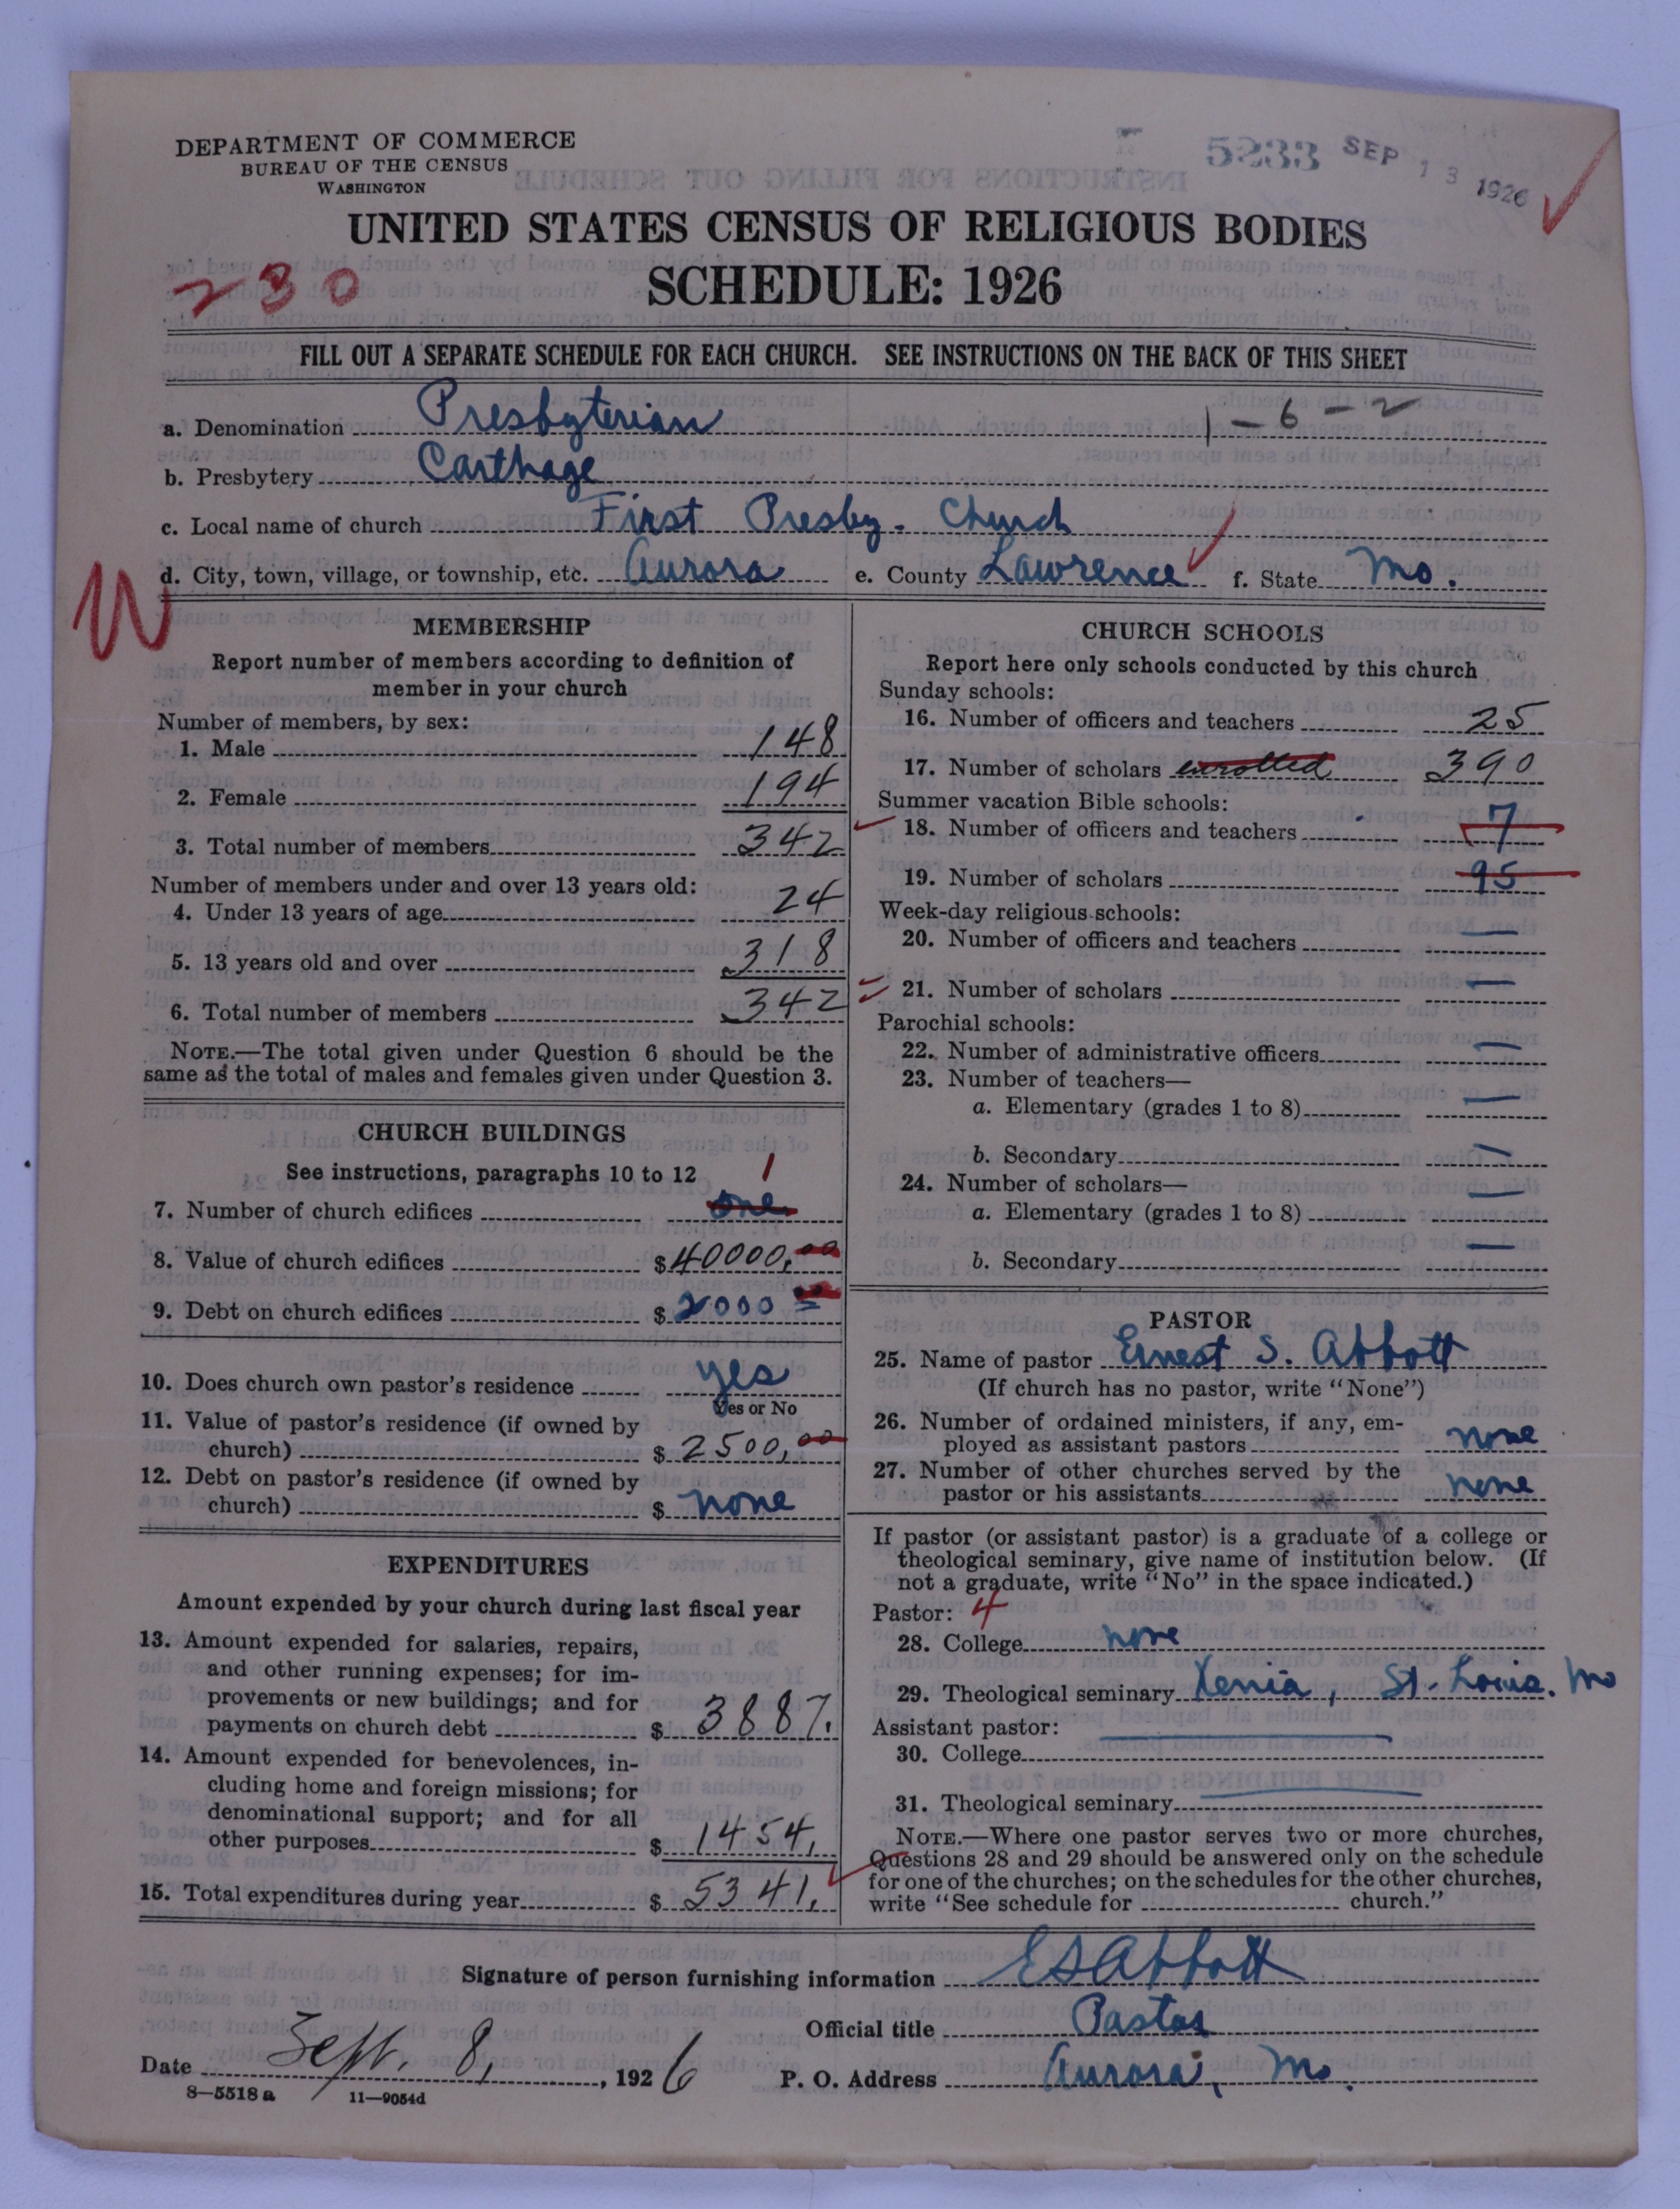 DEPARTMENT OF COMMERCE
BUREAU OF THE CENSUS
WASHINGTON
5233 SEP 13 1926
UNITED STATES CENSUS OF RELIGIOUS BODIES
230
SCHEDULE: 1926
FILL OUT A SEPARATE SCHEDULE FOR EACH CHURCH. SEE INSTRUCTIONS ON THE BACK OF THIS SHEET
a. Denomination Presbyterian 1-6-2
b. Presbytery Carthage
c. Local name of church First Presby. Church
d. City, town, village, or township, etc. Aurora e. County Lawrence f. State Mo.
W
MEMBERSHIP
Report number of members according to definition of
member in your church
Number of members, by sex:
1. Male 148
2. Female 194
3. Total number of members 342
Number of members under and over 13 years old:
4. Under 13 years of age 24
5. 13 years old and over 318
6. Total number of members 342
NOTE.—The total given under Question 6 should be the
same as the total of males and females given under Question 3.
CHURCH BUILDINGS
See instructions, paragraphs 10 to 12 1
7. Number of church edifices one
8. Value of church edifices $40000,00
9. Debt on church edifices $2000 00
10. Does church own pastor's residence yes
Yes or No
11. Value of pastor's residence (if owned by
church) $2500,00
12. Debt on pastor's residence (if owned by
church) $ none
EXPENDITURES
Amount expended by your church during last fiscal year
13. Amount expended for salaries, repairs,
and other running expenses; for im-
provements or new buildings; and for
payments on church debt $ 3887.
14. Amount expended for benevolences, in-
cluding home and foreign missions; for
denominational support; and for all
other purposes $ 1454,
15. Total expenditures during year $ 5341,
CHURCH SCHOOLS
Report here only schools conducted by this church
Sunday schools:
16. Number of officers and teachers 25
17. Number of scholars enrolled 390
Summer vacation Bible schools:
18. Number of officers and teachers 7
19. Number of scholars 95
Week-day religious schools:
20. Number of officers and teachers —
21. Number of scholars —
Parochial schools:
22. Number of administrative officers —
23. Number of teachers—
a. Elementary (grades 1 to 8) —
b. Secondary —
24. Number of scholars— —
a. Elementary (grades 1 to 8)
b. Secondary —
PASTOR
25. Name of pastor Ernest S. Abbott
(If church has no pastor, write "None")
26. Number of ordained ministers, if any, em-
ployed as assistant pastors none
27. Number of other churches served by the
pastor or his assistants none
If pastor (or assistant pastor) is a graduate of a college or
theological seminary, give name of institution below. (If
not a graduate, write "No" in the space indicated.)
Pastor: 4
28. College none
29. Theological seminary Xenia, St. Louis. Mo
Assistant pastor:
30. College
31. Theological seminary
NOTE.—Where one pastor serves two or more churches,
Questions 28 and 29 should be answered only on the schedule
for one of the churches; on the schedules for the other churches,
write "See schedule for church."
Signature of person furnishing information E S Abbott
Official title Pastor
Date Sept. 8, 1926 P. O. Address Aurora, Mo.
8—5518 a 11—9054d